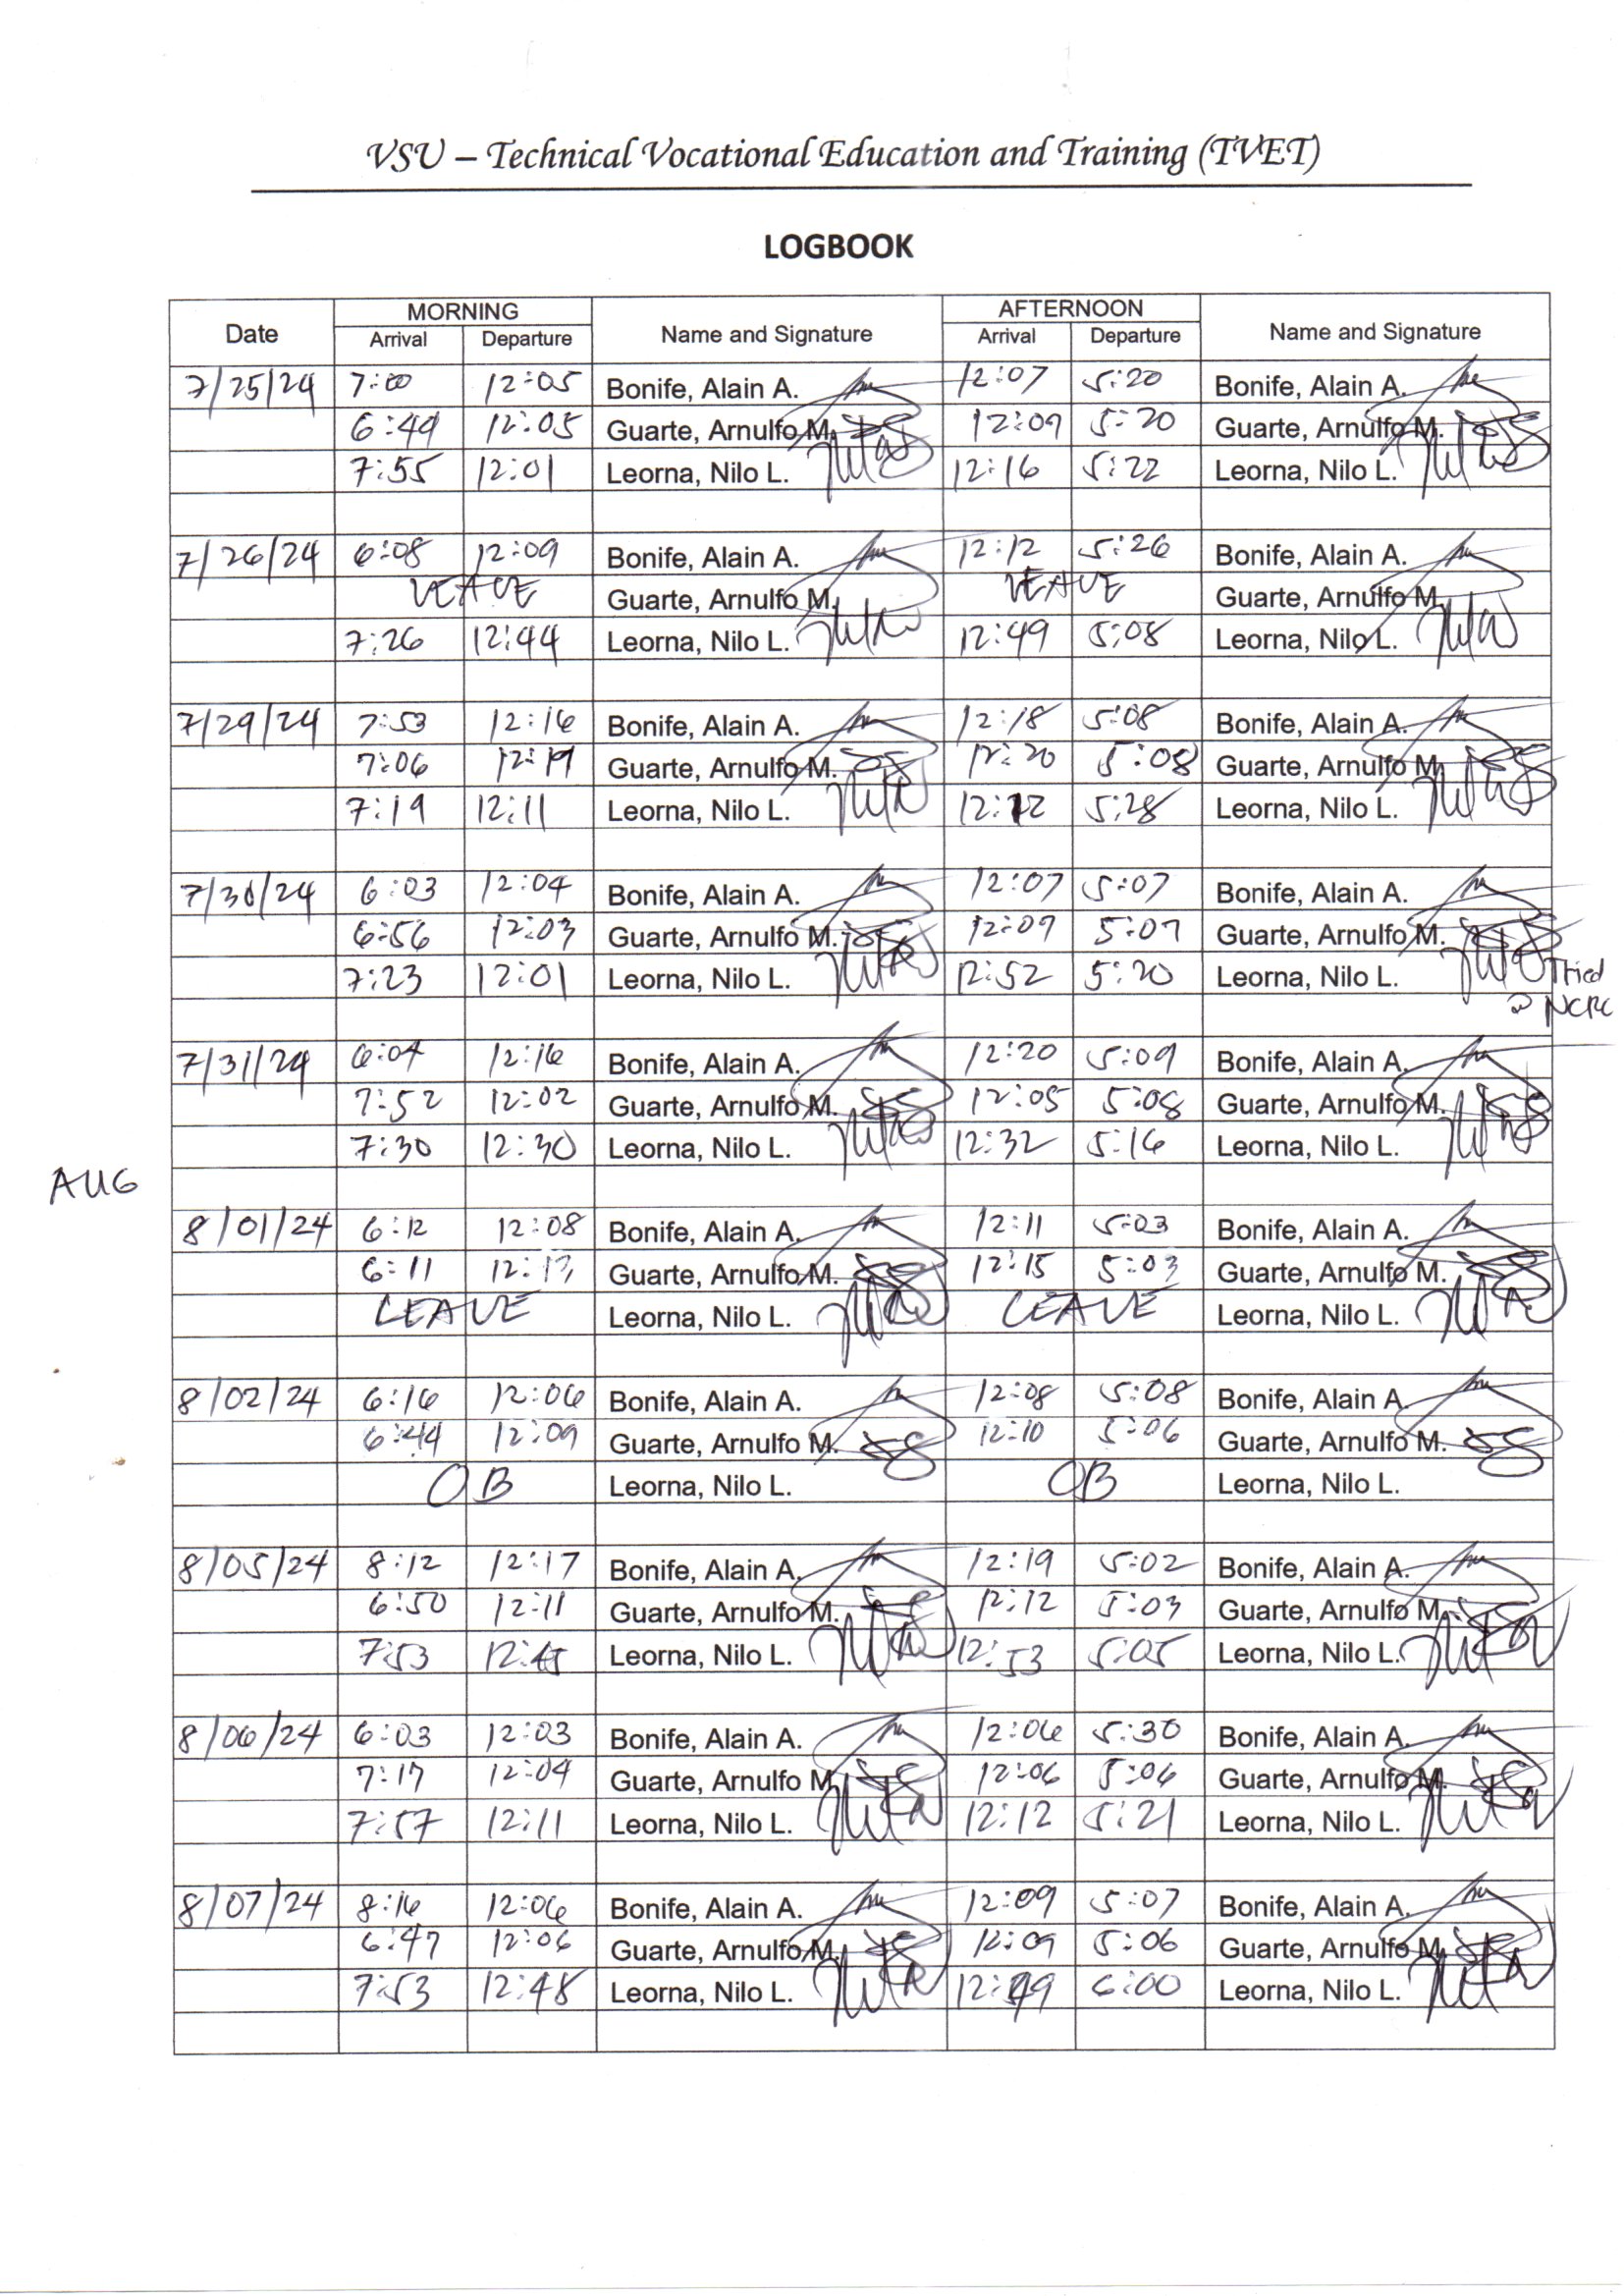 VSU – Technical Vocational Education and Training (TVET)
LOGBOOK
Date MORNING Name and Signature AFTERNOON Name and Signature
Arrival Departure Arrival Departure
7/25/24 7:00 12:05 Bonife, Alain A. 12:07 5:20 Bonife, Alain A.
6:49 12:05 Guarte, Arnulfo M. 12:09 5:20 Guarte, Arnulfo M.
7:55 12:01 Leorna, Nilo L. 12:16 5:22 Leorna, Nilo L.
7/26/24 6:08 12:09 Bonife, Alain A. 12:12 5:26 Bonife, Alain A.
LEAVE Guarte, Arnulfo M. LEAVE Guarte, Arnulfo M.
7:26 12:44 Leorna, Nilo L. 12:49 5:08 Leorna, Nilo L.
7/29/24 7:53 12:16 Bonife, Alain A. 12:18 5:08 Bonife, Alain A.
7:06 12:19 Guarte, Arnulfo M. 12:20 5:08 Guarte, Arnulfo M.
7:19 12:11 Leorna, Nilo L. 12:12 5:28 Leorna, Nilo L.
7/30/24 6:03 12:04 Bonife, Alain A. 12:07 5:07 Bonife, Alain A.
6:56 12:03 Guarte, Arnulfo M. 12:09 5:07 Guarte, Arnulfo M.
7:23 12:01 Leorna, Nilo L. 12:52 5:20 Leorna, Nilo L. Tried
@ NCRC
7/31/24 6:04 12:16 Bonife, Alain A. 12:20 5:09 Bonife, Alain A.
7:52 12:02 Guarte, Arnulfo M. 12:05 5:08 Guarte, Arnulfo M.
7:30 12:30 Leorna, Nilo L. 12:32 5:16 Leorna, Nilo L.
AUG
8/01/24 6:12 12:08 Bonife, Alain A. 12:11 5:03 Bonife, Alain A.
6:11 12:13 Guarte, Arnulfo M. 12:15 5:03 Guarte, Arnulfo M.
LEAVE Leorna, Nilo L. LEAVE Leorna, Nilo L.
8/02/24 6:16 12:06 Bonife, Alain A. 12:08 5:08 Bonife, Alain A.
6:44 12:09 Guarte, Arnulfo M. 12:10 5:06 Guarte, Arnulfo M.
OB Leorna, Nilo L. OB Leorna, Nilo L.
8/05/24 8:12 12:17 Bonife, Alain A. 12:19 5:02 Bonife, Alain A.
6:50 12:11 Guarte, Arnulfo M. 12:12 5:03 Guarte, Arnulfo M.
7:53 12:45 Leorna, Nilo L. 12:53 5:05 Leorna, Nilo L.
8/06/24 6:03 12:03 Bonife, Alain A. 12:06 5:30 Bonife, Alain A.
7:17 12:04 Guarte, Arnulfo M. 12:06 5:06 Guarte, Arnulfo M.
7:57 12:11 Leorna, Nilo L. 12:12 5:21 Leorna, Nilo L.
8/07/24 8:16 12:06 Bonife, Alain A. 12:09 5:07 Bonife, Alain A.
6:47 12:06 Guarte, Arnulfo M. 12:09 5:06 Guarte, Arnulfo M.
7:53 12:48 Leorna, Nilo L. 12:49 6:00 Leorna, Nilo L.